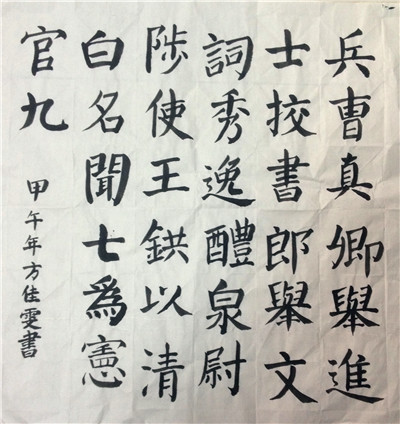 兵曹真卿舉進
士挍書郎舉文
詞秀逸醴泉尉
陟使王鉷以清
白名聞七爲憲
官九
甲午年方佳雯書